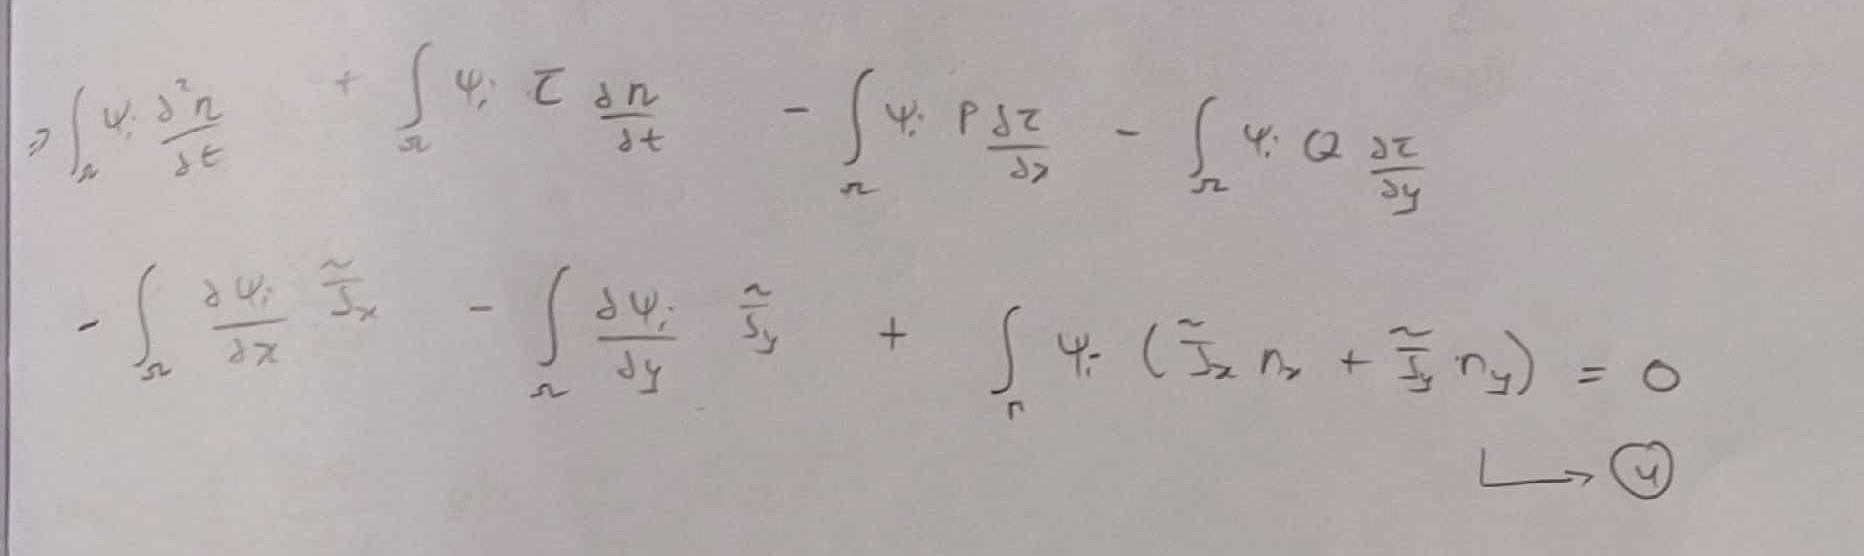 ⇒ ∫_Ω ψ_i ∂²η/∂t + ∫_Ω ψ_i τ ∂η/∂t - ∫_Ω ψ_i P ∂τ/∂x - ∫_Ω ψ_i Q ∂τ/∂y
- ∫_Ω ∂ψ_i/∂x J̃_x - ∫_Ω ∂ψ_i/∂y J̃_y + ∫_Γ ψ_i (J̃_x n_x + J̃_y n_y) = 0
↳ (4)